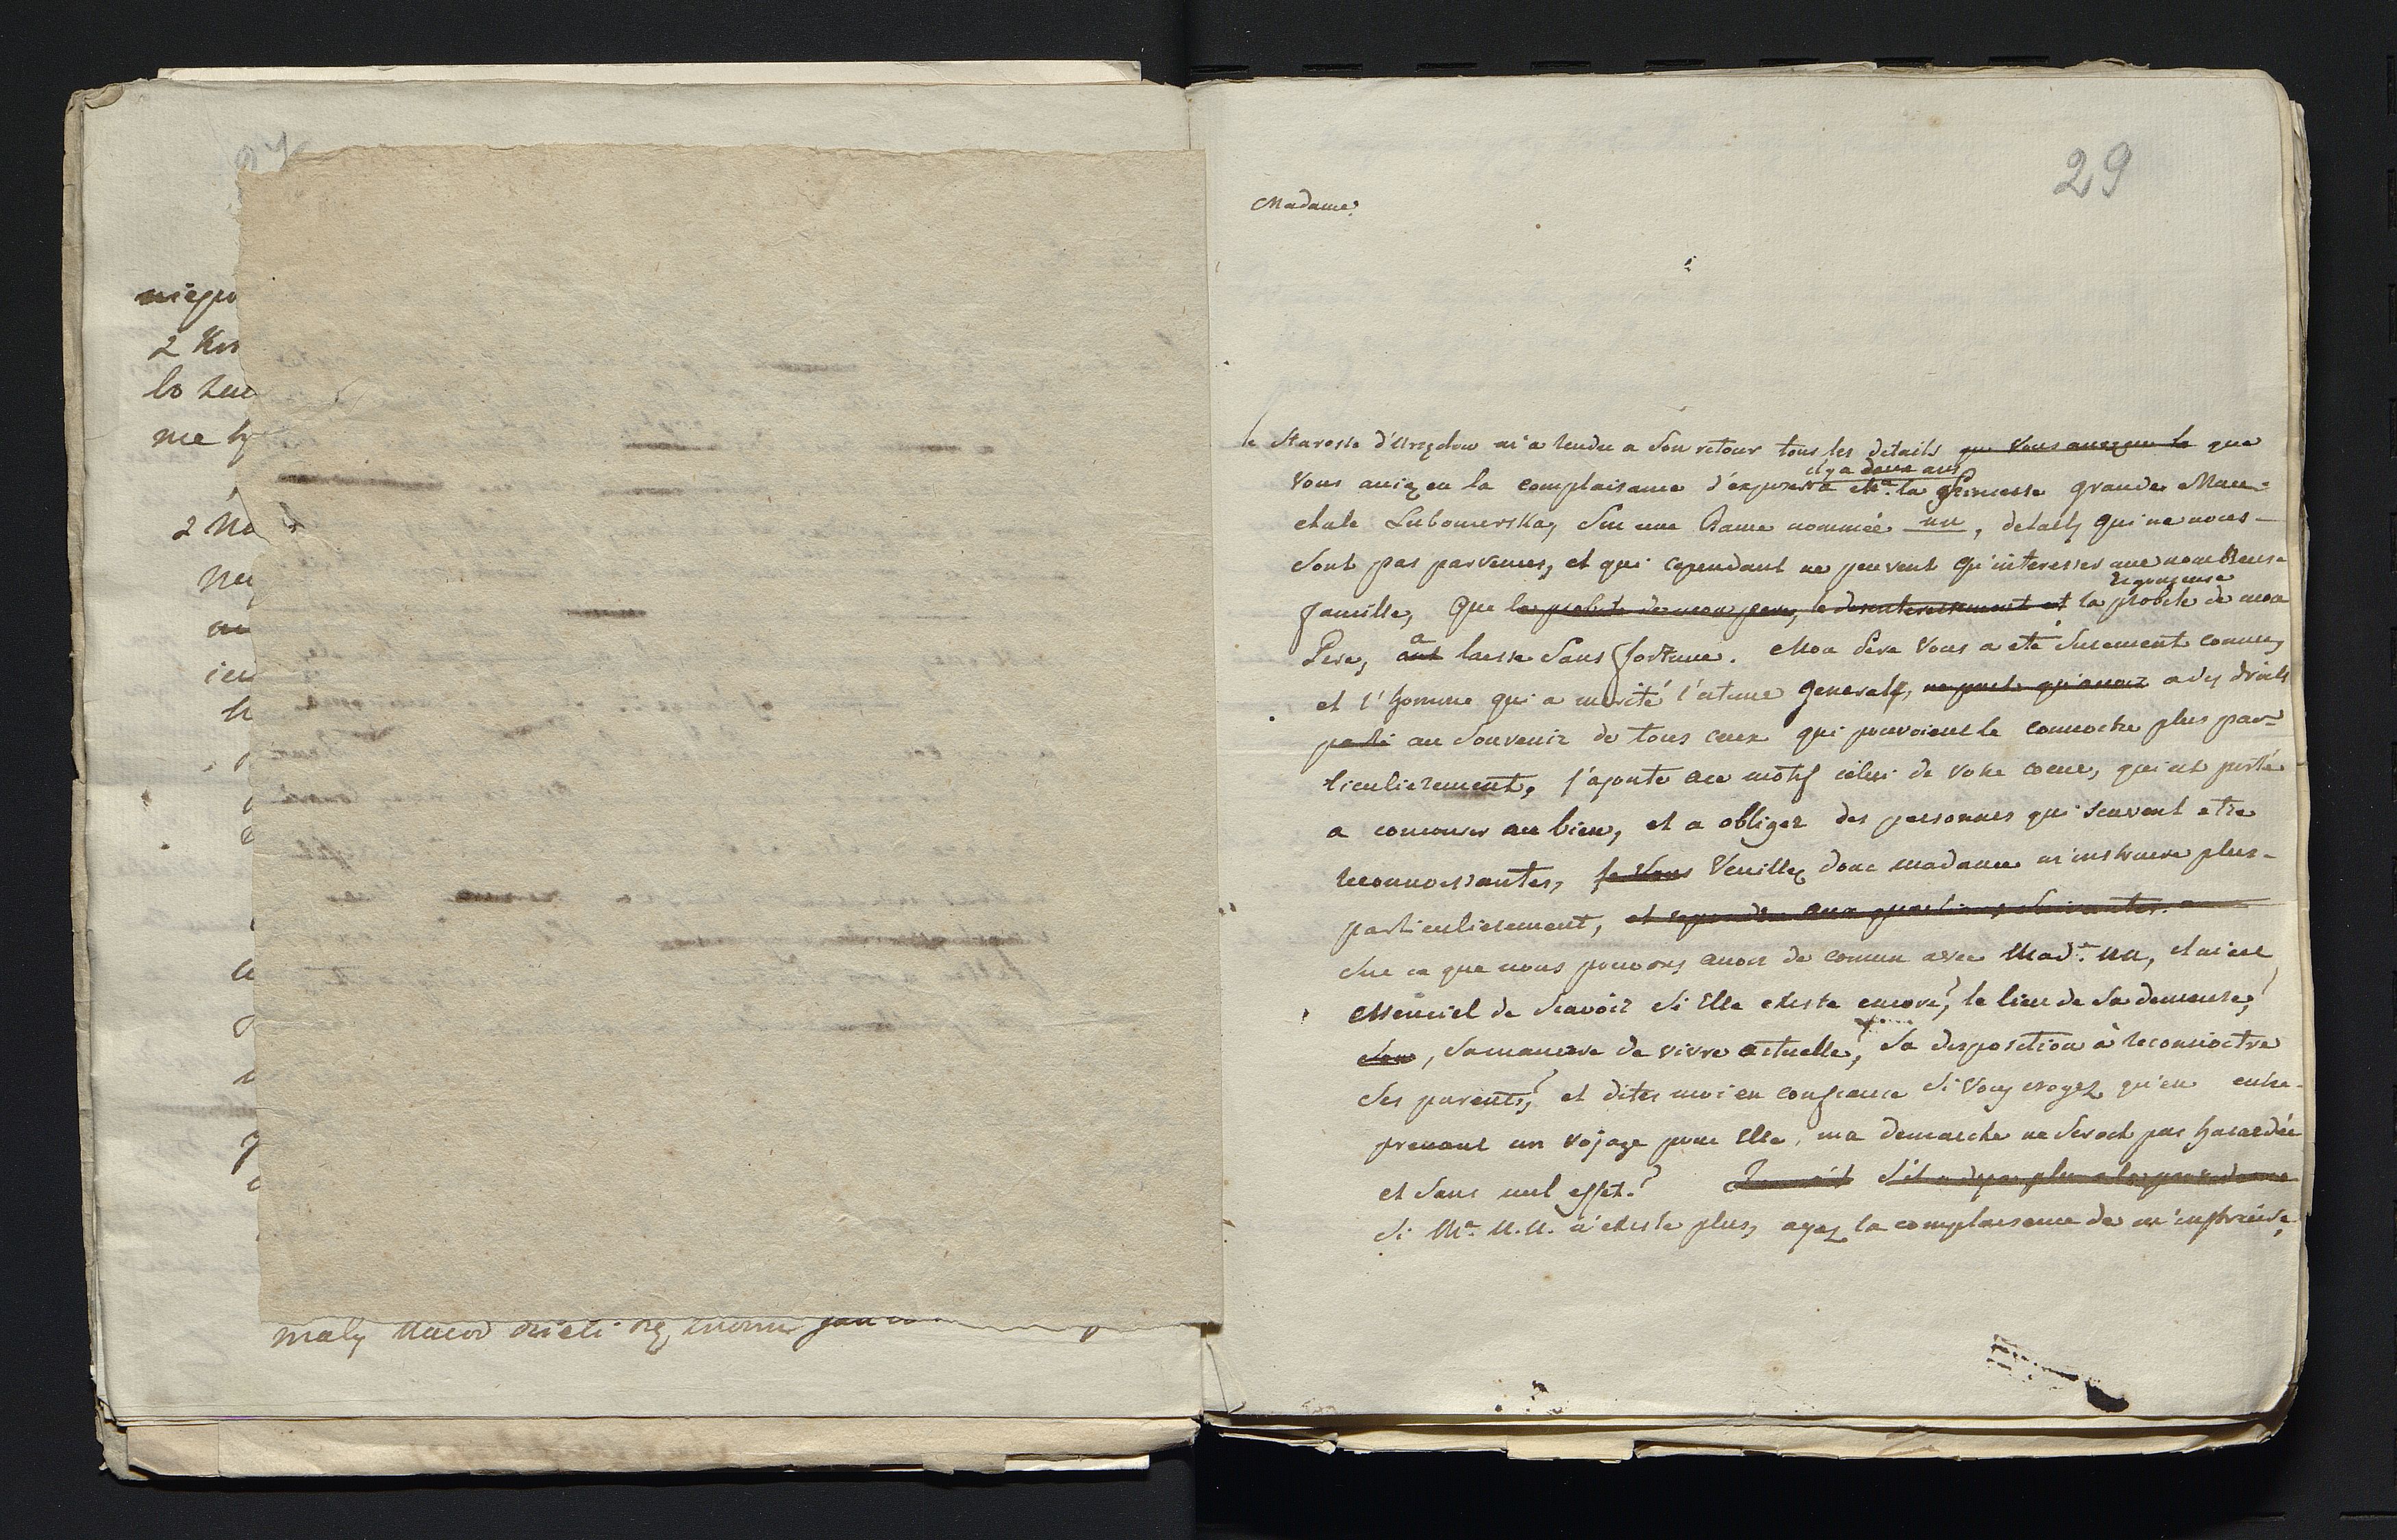 niepo
2 Kro
lo
me
2 No
ieu
maly
29
Madame
le Staroste d'Urzędow m'a rendu a Son retour tous les details que Vous avez eu la que
il y a deux ans
Vous aviez eu la complaisance d'exposer a Me. la Princesse grande Mare-
chale Lubomirska, Sur une Dame nommée nn, details qui ne nous
Sont pas parvenus, et qui cependant ne peuvent qu'interesser une nombreuse
Rigoureuse
famille, Que la probité de mon pere, le desinteressement et la probité de mon
Pere, ont a laissé Sans fortune. Mon Pere Vous a eté Surement connu,
et l'homme qui a merité l'estime general, ne peut qu'avoir a des droits
parti au Souvenir de tous ceux qui pouvoient le connoitre plus par-
ticulierement, j'ajoute a ce motif celui de votre coeur, qui est porté
a concourir au bien, et a obliger des personnes qui Scavent etre
reconnoissantes, je Vous Veuillez donc madame m'instruire plus
particulierement, et repondre aux questions Suivantes.
Sur ce que nous pouvons avoir de comun avec Made. nn, il m'est
essenciel de Scavoir Si Elle existe encore? le lieu de Sa demeure?
Son, Sa maniere de vivre actuelle? Sa disposition à reconnoitre
Ses parents? et dites moi en confience Si Vous croyez qu'en entre-
prenant un vojage pour Elle, ma demarche ne Seroit pas hasardée
et Sans nul effet? S'il
Si Me. N.N. n'existe plus, ayez la complaisance de m'instruire,